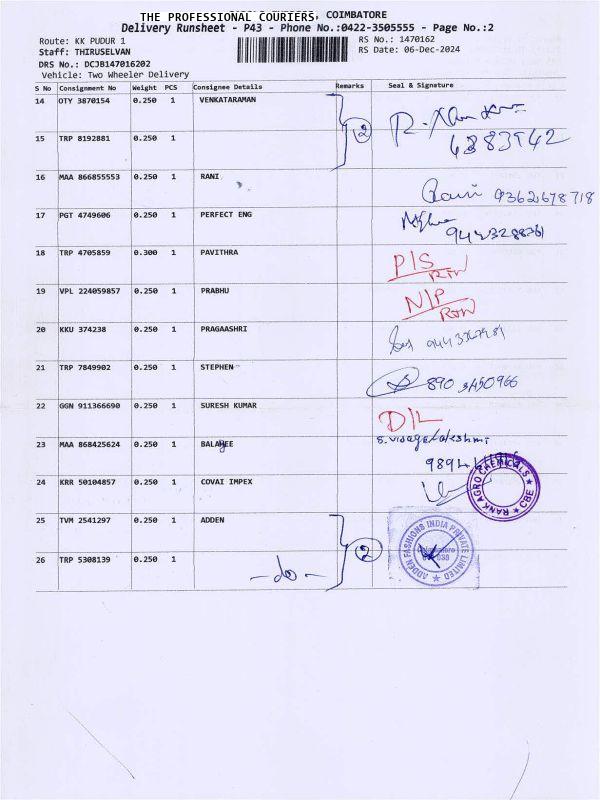 THE PROFESSIONAL COURIERS, COIMBATORE
Delivery Runsheet - P43 - Phone No.:0422-3505555 - Page No.:2
Route: KK PUDUR 1
RS No.: 1470162
Staff: THIRUSELVAN
RS Date: 06-Dec-2024
DRS No.: DCJB147016202
Vehicle: Two Wheeler Delivery
S No Consignment No Weight PCS Consignee Details Remarks Seal & Signature
14 OTY 3870154 0.250 1 VENKATARAMAN
2
15 TRP 8192881 0.250 1
16 MAA 866855553 0.250 1 RANI
Rani 9362678718
17 PGT 4749606 0.250 1 PERFECT ENG
18 TRP 4705859 0.300 1 PAVITHRA P/S
RTN
19 VPL 224059857 0.250 1 PRABHU N/P
RTN
20 KKU 374238 0.250 1 PRAGAASHRI
21 TRP 7849902 0.250 1 STEPHEN
890 3450966
22 GGN 911366690 0.250 1 SURESH KUMAR D/L
23 MAA 868425624 0.250 1 BALAJEE
24 KRR 50104857 0.250 1 COVAI IMPEX
RANK AGRO CHEMICALS ★ CBE ★
25 TVM 2541297 0.250 1 ADDEN
2
ADDEN FASHIONS INDIA PRIVATE LIMITED ★
26 TRP 5308139 0.250 1
-do-